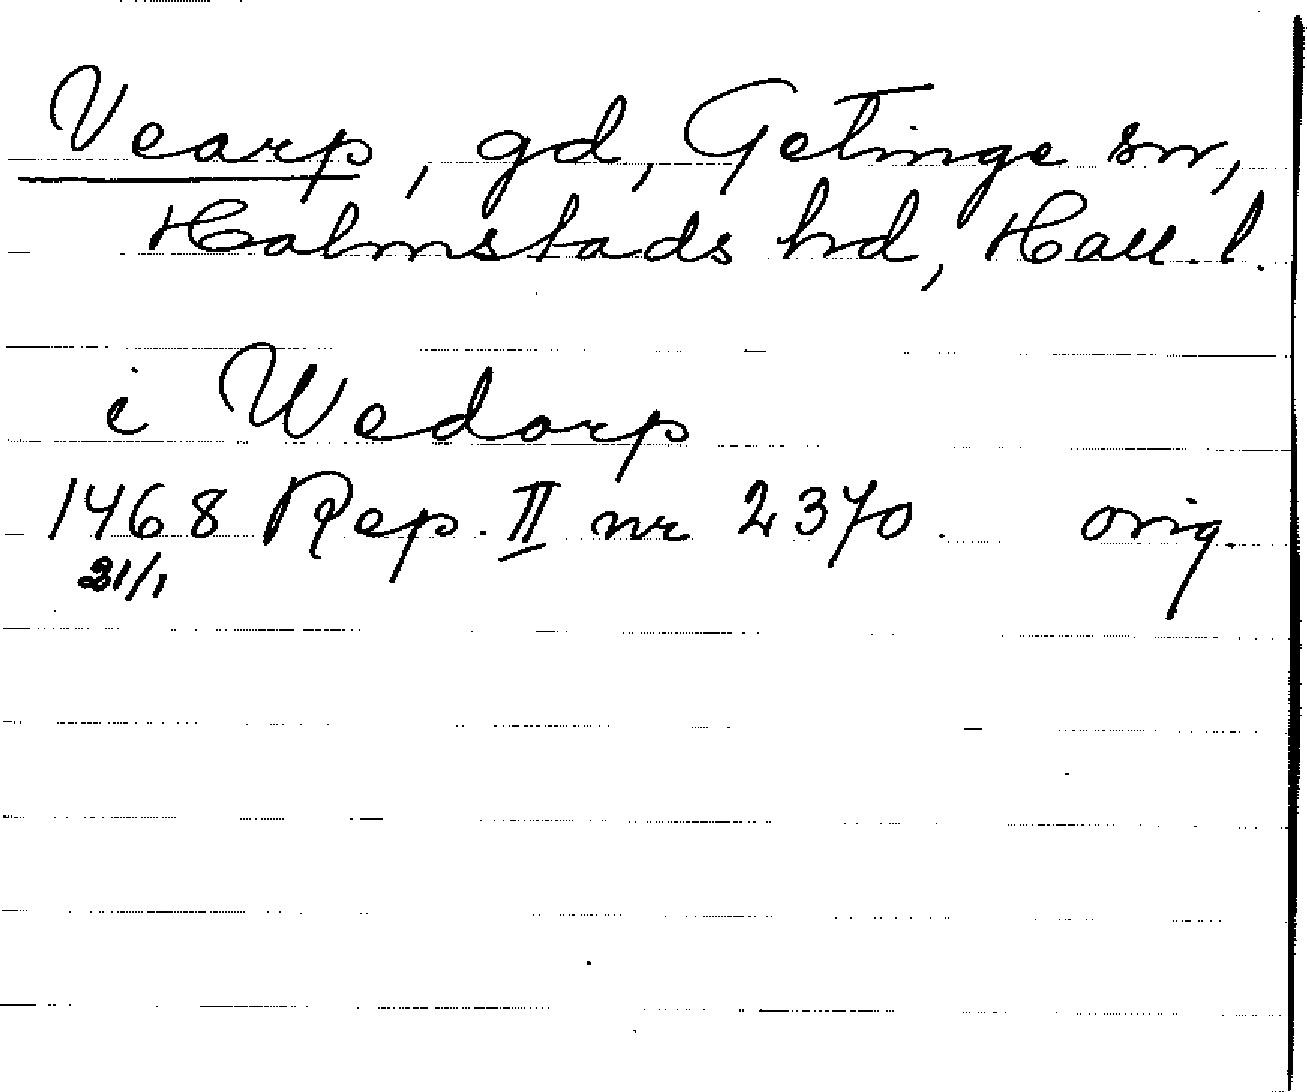 Vearp, gd, Getinge sn,
Halmstads hd, Hall. l.
i Wedorp
1468 Rep. II nr 2370. orig.
21/1